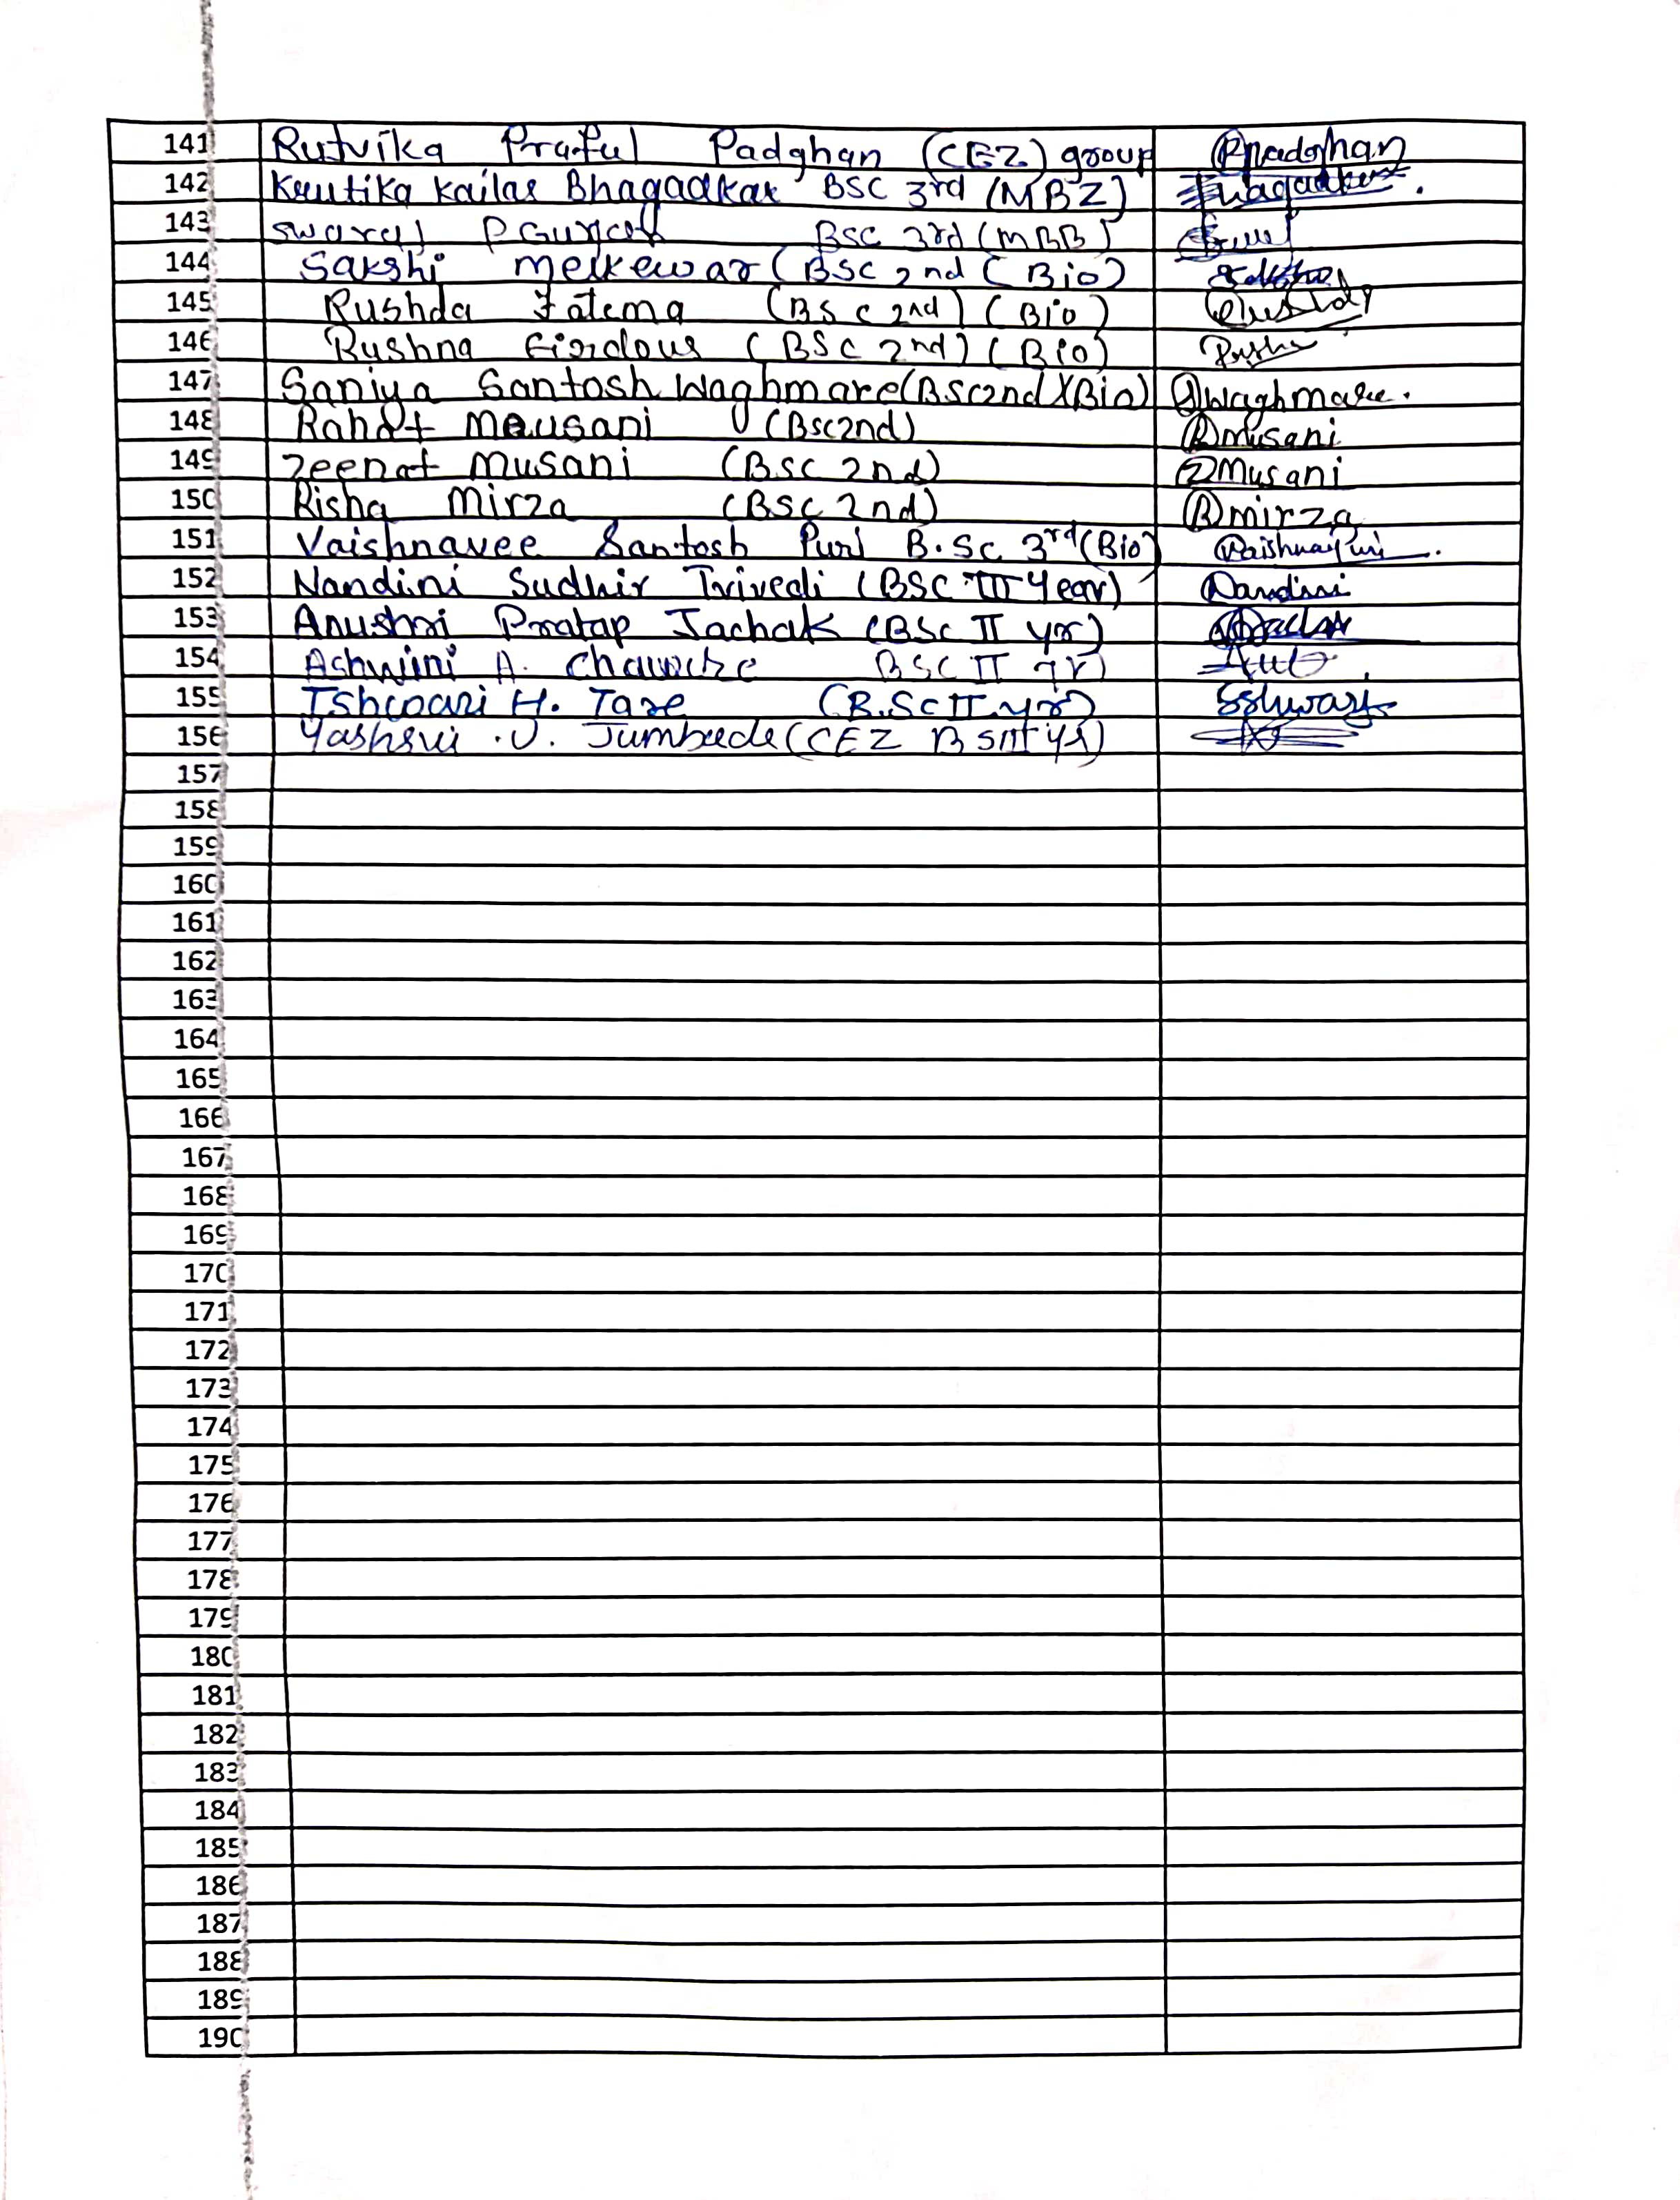 141 Rutvika Praful Padghan (CEZ) group Rpadghan
142 Krutika Kailas Bhagadkar BSC 3rd (MBZ)
143 swaraj P BSC 3rd (MBB)
144 Sakshi Melkewar (BSC 2nd (Bio)
145 Rushda Fatema (BSC 2nd) (Bio)
146 Rushna Firdous (BSC 2nd) (Bio)
147 Saniya Santosh Waghmare (Bsc2nd)(Bio) Swaghmare.
148 Rahat Mousani (Bsc2nd) Rmusani
149 Zeenat Musani (BSC 2nd) ZMusani
150 Risha Mirza (BSC 2nd) Rmirza
151 Vaishnavee Santosh Puri B.Sc 3rd (Bio)
152 Nandini Sudhir Trivedi (BSC III Year) Nandini
153 Anushri Pratap Jachak (BSc II yr)
154 Ashwini A. BSC II yr)
155 Ishwari H. Tare (B.Sc II yr) Eshwari
156 Yashsvi .J. (CEZ
157
158
159
160
161
162
163
164
165
166
167
168
169
170
171
172
173
174
175
176
177
178
179
180
181
182
183
184
185
186
187
188
189
190